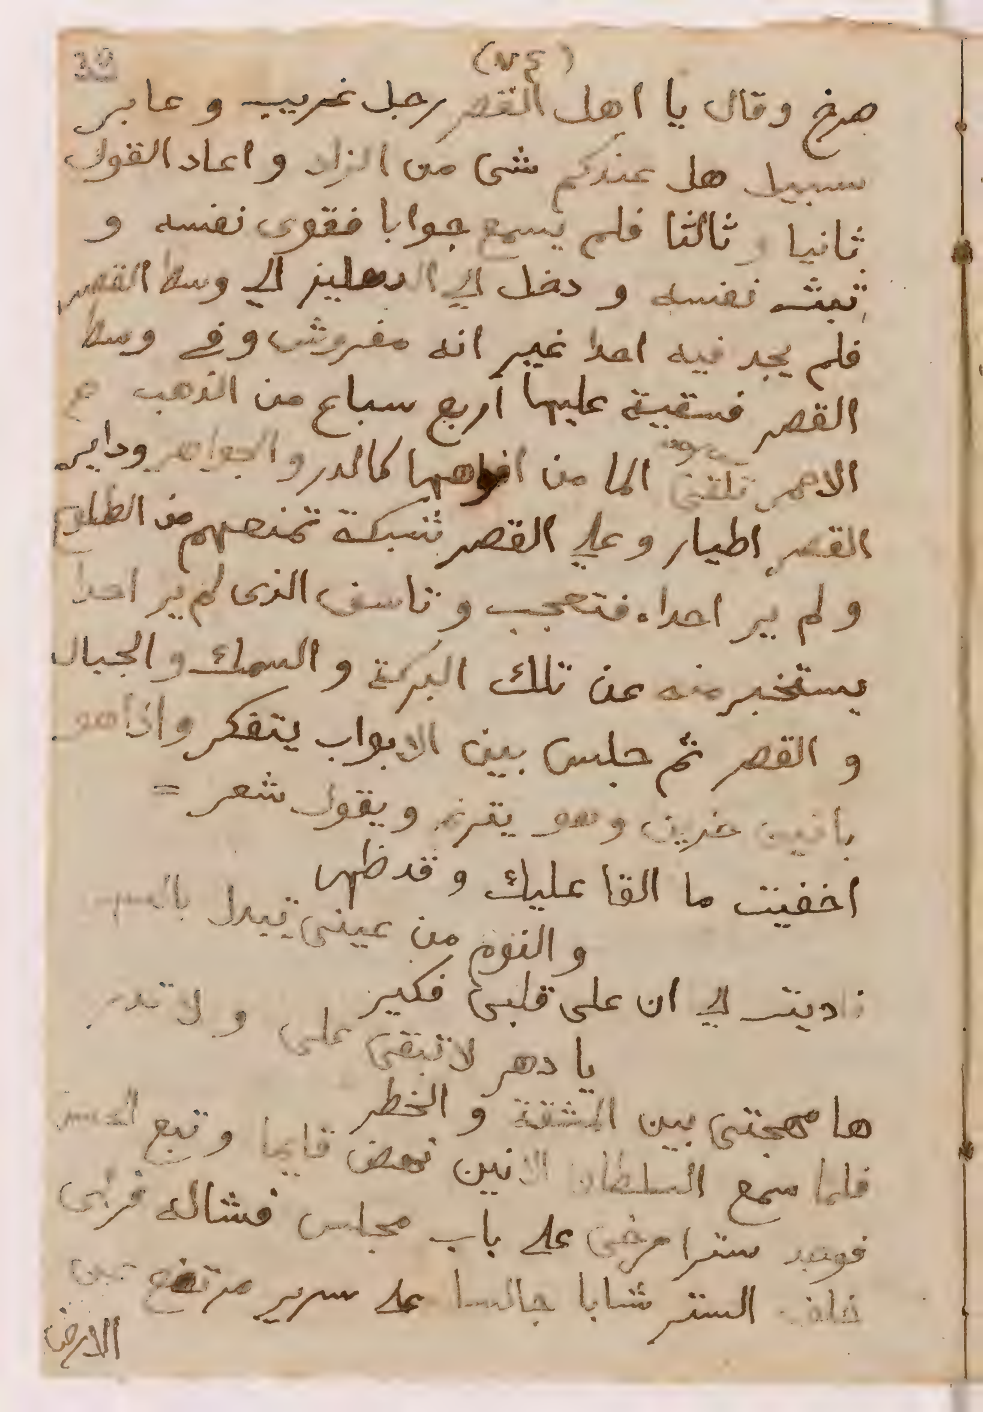 صرخ وقال يا اهل القصر رجل غريب و عابر
سبيل هل عندكم شى من الزاد و اعاد القول
ثانيا و ثالثا فلم يسمع جوابا فقوى نفسه و
ثبت نفسه و دخل الي الدهليز الي وسط القصر
فلم يجد فيه احدا غير انه مفروش وفي وسط
القصر فسقية عليها اربع سباع من الذهب
الاحمر تلقى الما من افواهها كالدر و الجواهر وداير
القصر اطيار وعلي القصر شبكة تمنعهم من الطلوع
ولم ير احدا فتعجب و تاسف الذى لم ير احدا
يستخبر منه عن تلك البركة و السمك و الجبال
و القصر ثم جلس بين الابواب يتفكر واذا هو
بانين حزين وهو يترنم ويقول شعر =
اخفيت ما القا عليك وقد ظهر
و النوم من عينى تبدل بالسهر
ناديت لي ان على قلبى فكير
يا دهر لا تبقى على ولا تدر
ها مهجتى بين المشقة و الخطر
فلما سمع السلطان الانين نهض قايما وتبع الحس
فوجد سترا مرخى علي باب مجلس فشاله فراى
خلف الستر شابا جالسا علي سرير مرتفع عن
الارض